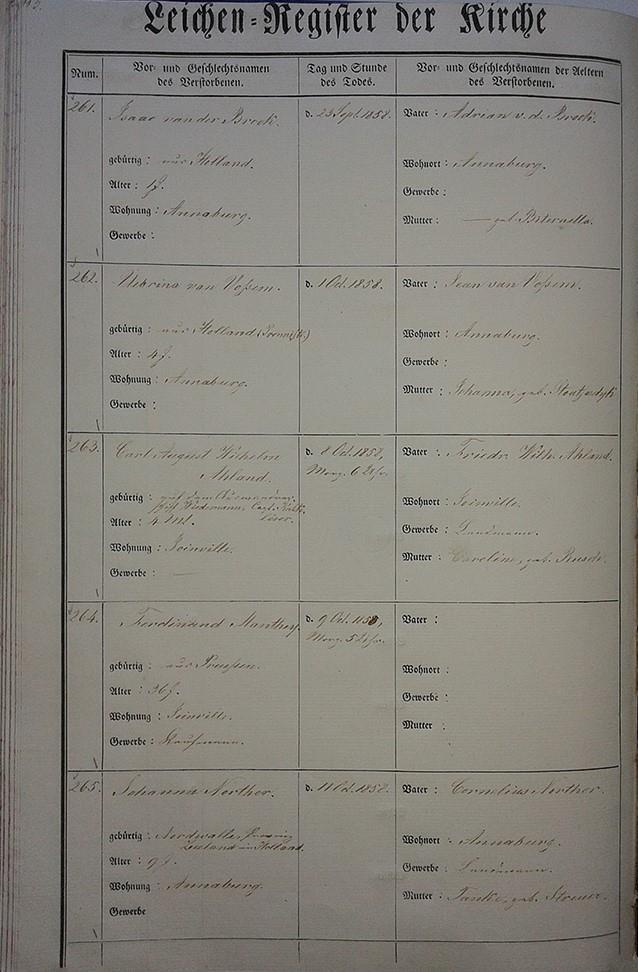 Leichen-Register der Kirche
Num.
Vor- und Geschlechtsnamen
des Verstorbenen.
Tag und Stunde
des Todes.
Vor- und Geschlechtsnamen der Aeltern
des Verstorbenen.
261.
Isaac van der Broek.
gebürtig: aus Holland.
Alter: 1 J.
Wohnung: Annaburg.
Gewerbe:
d. 23 Sept. 1858.
Vater: Adrian v. d. Broek.
Wohnort: Annaburg.
Gewerbe:
Mutter: — geb.
262.
van Vossem.
gebürtig: aus Holland
Alter: 4 J.
Wohnung: Annaburg.
Gewerbe:
d. 1 Oct. 1858.
Vater: Jean van Vossem.
Wohnort: Annaburg.
Gewerbe:
Mutter: Johanna, geb.
263.
Carl August Wilhelm
Ahland.
gebürtig: auf dem
Schiff
Alter: 4 Mt.
Wohnung: Joinville.
Gewerbe: —
d. 8 Oct. 1858,
Morg. 6 Uhr.
Vater: Friedr. Wilh. Ahland.
Wohnort: Joinville.
Gewerbe: Landmann.
Mutter: Caroline, geb.
264.
Ferdinand Manthey.
gebürtig: aus Preußen.
Alter: 36 J.
Wohnung: Joinville.
Gewerbe: Kaufmann.
d. 9 Oct. 1858,
Morg. 5 Uhr.
Vater:
Wohnort:
Gewerbe:
Mutter:
265.
Johanna Northor.
gebürtig: Provinz
Zeeland in Holland.
Alter: 9 J.
Wohnung: Annaburg.
Gewerbe
d. 11 Oct. 1858.
Vater: Cornelius Northor.
Wohnort: Annaburg.
Gewerbe: Landmann.
Mutter: geb.